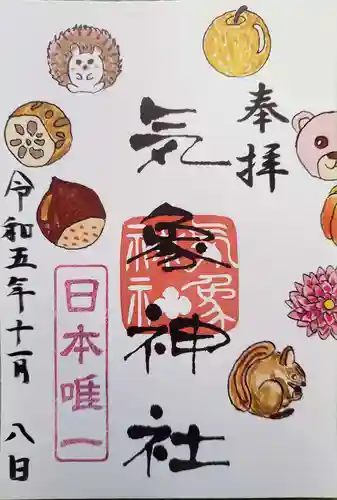 奉拝
気象神社
気象神社
日本唯一
令和五年十一月 八日